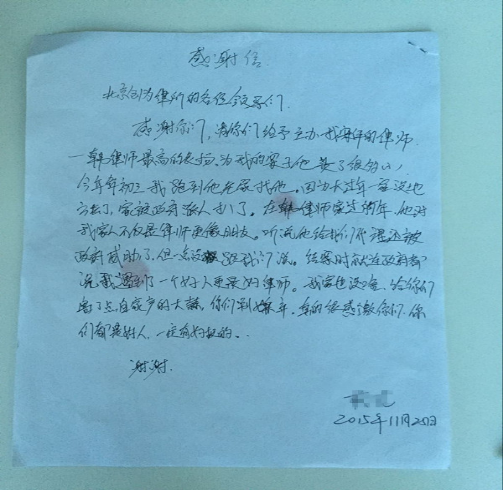 感谢信
北京创为律所的各位领导们,
感谢你们,请你们给予主办我案件的律师
一韩律师最高的表扬,为我的案子他费了很多心,
今年年初三我跑到他在家找他。因为大过年一定没地
方去了,家被政府派人扒了。在韩律师家过的年,他对
我家人不仅是律师更像朋友。听说他给我们代理还被
政府威胁了,但一点没跟我们说。结案时就连政府都
说我遇到了一个好人更是好律师。我家也没啥,给你们
自家产的大
你们别嫌弃,真的很感激你们,你
们都是好人,一定有好报的。
谢谢.
2015年11月25日